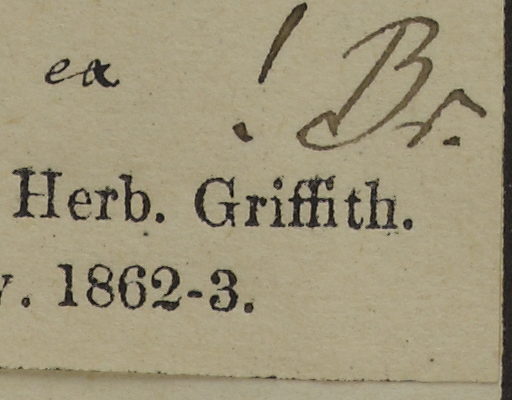 ex ! Br.
Herb. Griffith.
. 1862-3.